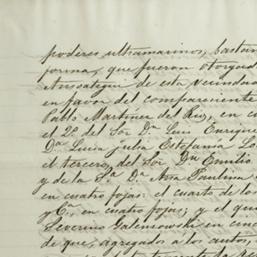 poderes ultramarinos, bastan
forma, que fueron otorgad
de esta vecindad
en favor del compareciente
Pablo Martinez del Rio, en cu
el 2º del Sor Dn Luis Enrique
Da Luisa Julia Estefania Lo
el tercero, del Sor Dn Emilio
y de la Sa Da Ana Paulina
en cuatro fojas: el cuarto de los
y Ca, en cuatro fojas; y el qui
Severino Galenzowski en cinc
de que, agregados a los autos,